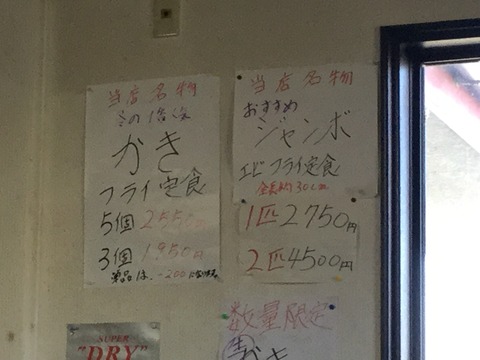 当店名物
冬の
かき
フライ定食
5個 2550円
3個 1950円
単品は、-200になります
当店名物
おすすめ
ジャンボ
エビフライ定食
全長約30cm
1匹2750円
2匹4500円
数量限定
生かき
SUPER
"DRY"